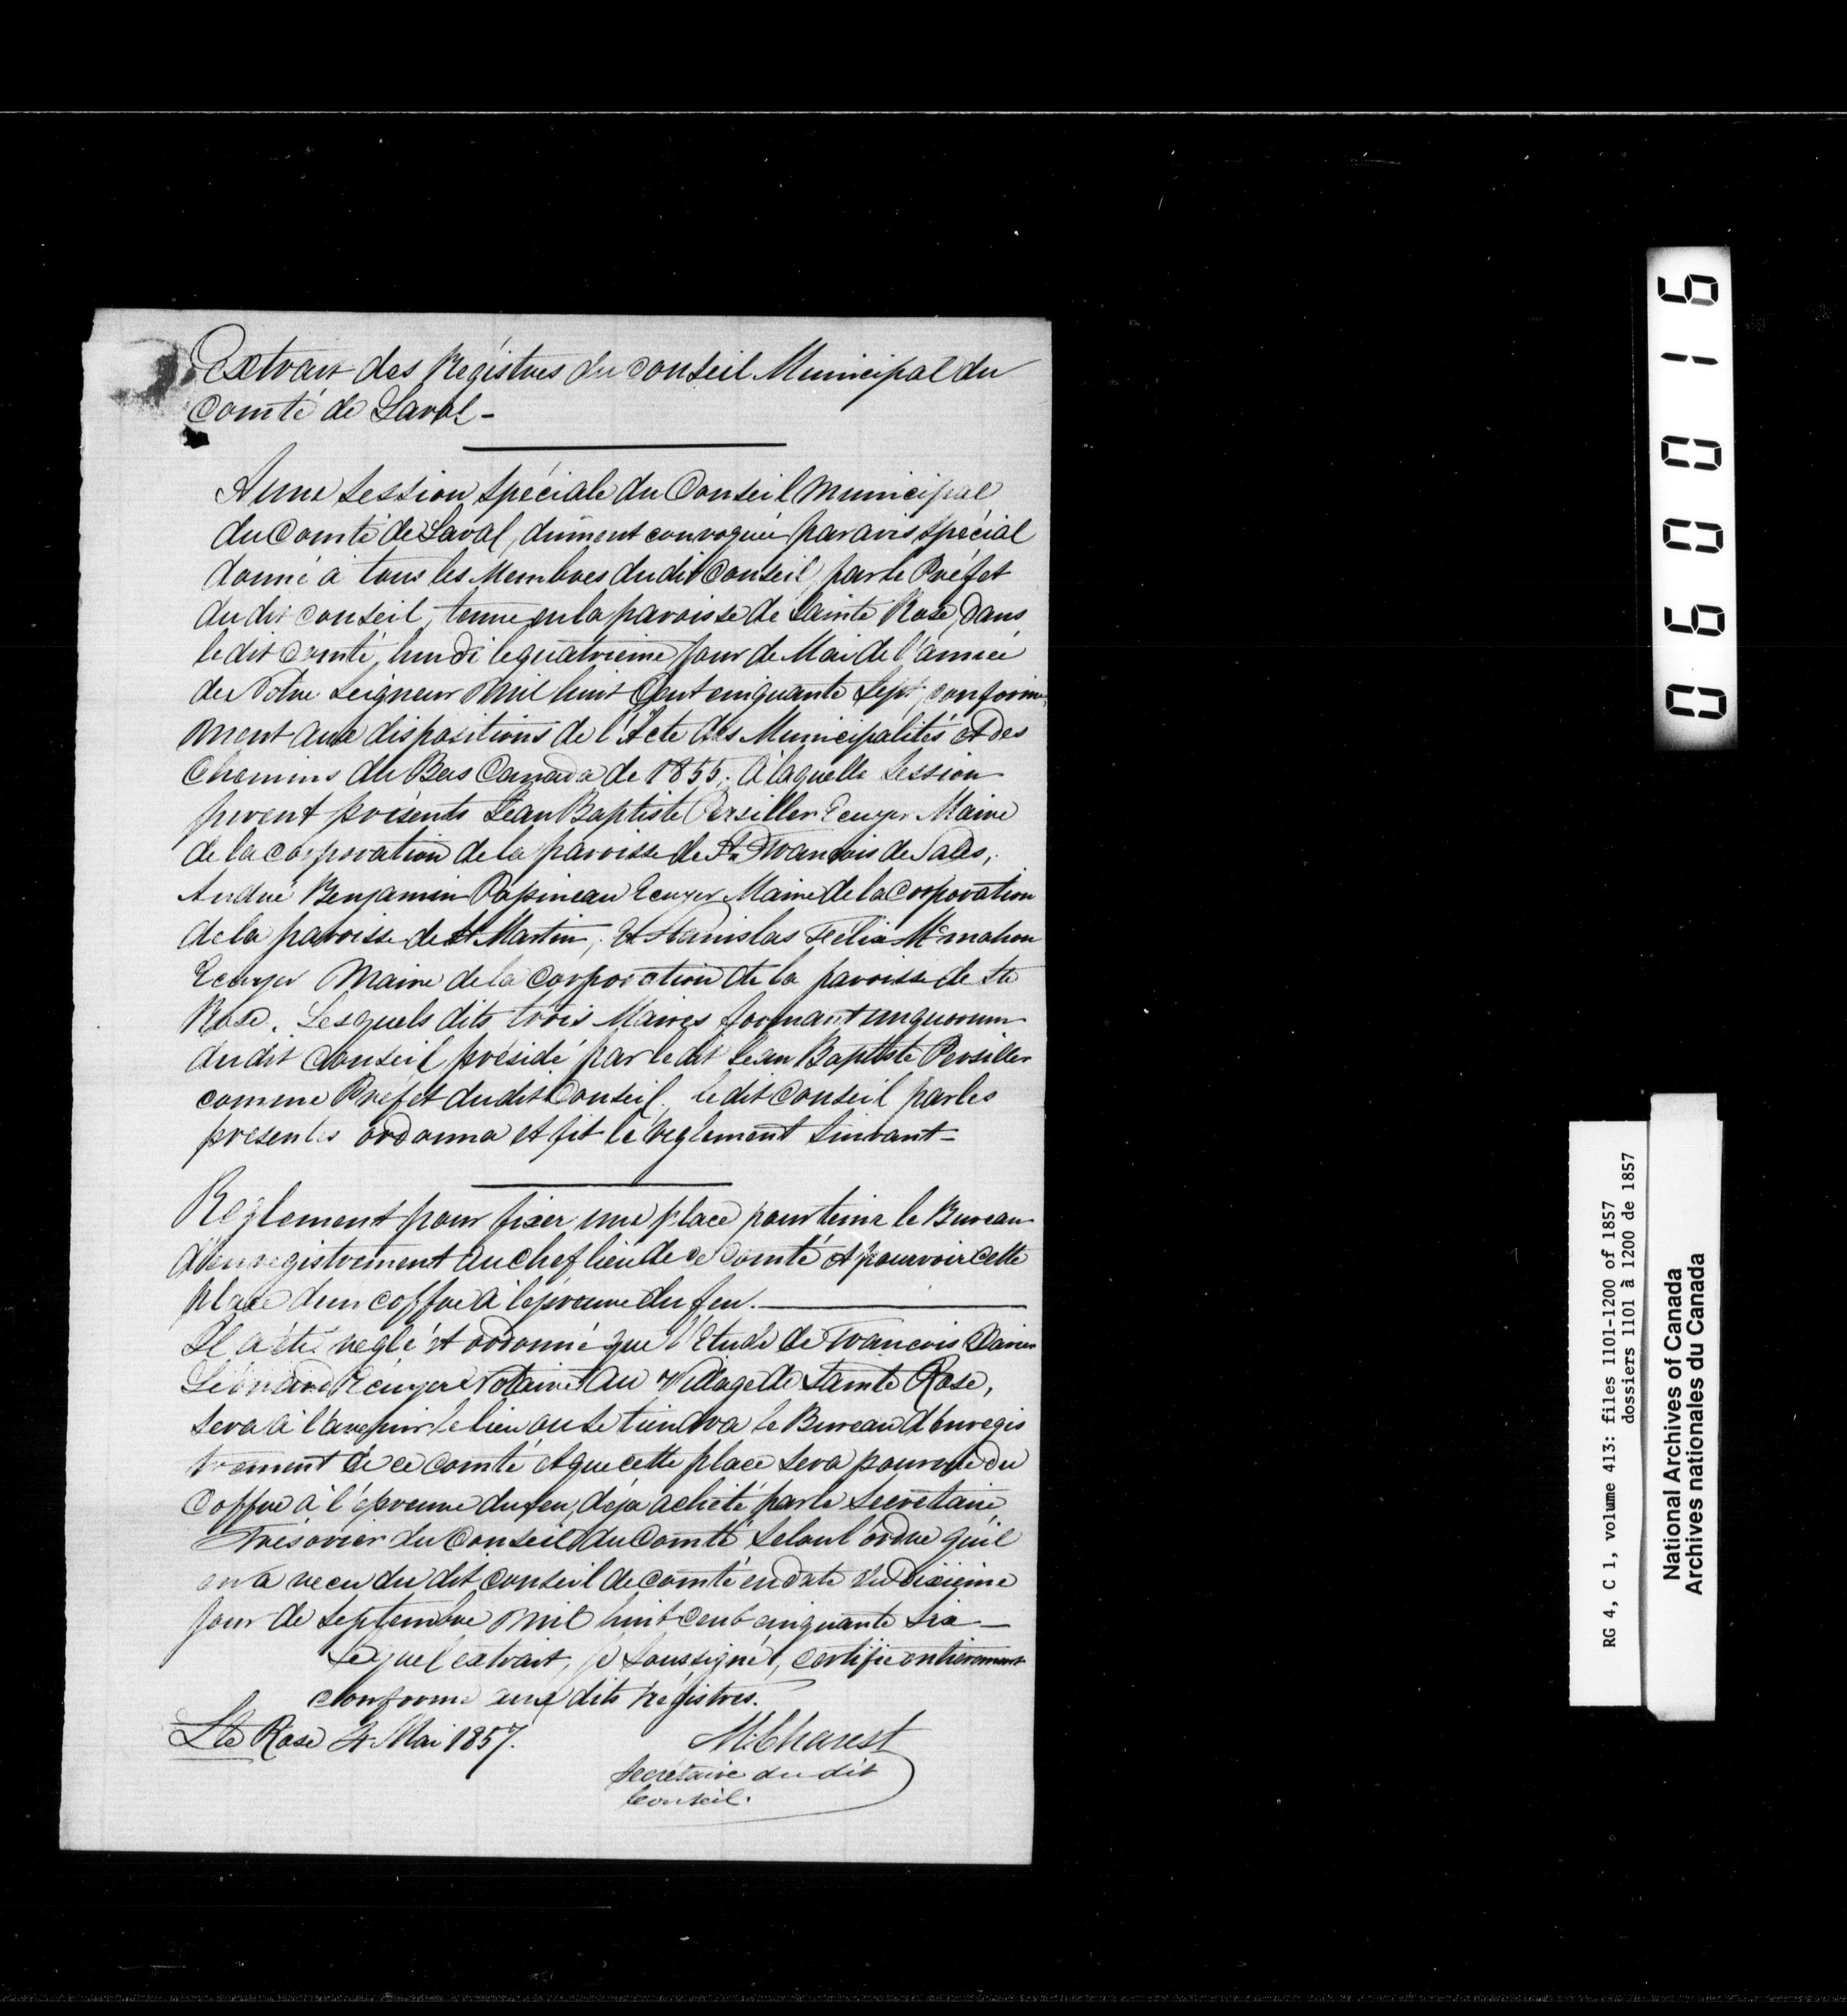 Extrait des Régistres du conseil Municipal du
Comté de Laval -
A une Session Spéciale du Conseil Municipal
du Comté de Laval, dûment convoquée par avis spécial
donné à tous les Membres du dit Conseil, par le Préfet
du dit conseil, tenue en la paroisse de Sainte Rose, dans
le dit Comté, lundi le quatrieme jour de Mai de l'année
de Notre Seigneur Mil huit Cent cinquante Sept, conformé-
ment aux dispositions de l'Acte des Municipalités et des
Chemins du Bas Canada de 1855; à laquelle Session
furent présents Jean Baptiste Persiller Ecuyer Maire
de la corporation de la paroisse de St. Francois de Sales,
André Benjamin Papineau Ecuyer Maire de la Corporation
de la paroisse de St Martin, Et Stanislas Félix Mc mahon
Ecuyer Maire de la Corporation de la paroisse de Ste
Rose. Lesquels dits trois Maires formant un quorum
du dit Conseil présidé par le dit Jean Baptiste Persiller
comme Préfet du dit Conseil, le dit Conseil par les
présentes ordonna et fit le réglement suivant -
Réglement pour fixer une place pour tenir le Bureau
d'enregistrement au chef lieu de ce Comté et pourvoir cette
place d'un coffre à l'épreuve du feu.
Il a été réglé et ordonné que l'Etude de Francois Xavier
Léonard Ecuyer Notaire Au Village de Sainte Rose,
Sera à l'avenir le lieu ou se tiendra le Bureau d'Enregis
trement de ce comté et que cette place sera pourvue du
Coffre à l'épreuve du feu, déja acheté par le Secrétaire
Trésorier du Conseil du Comté Selon l'ordre qu'il
en a recu du dit Conseil de comté en date du dixieme
jour de Septembre Mil huit cent cinquante Six -
Lequel extrait, je Soussigné, certifie entièrement
Conforme aux dits régistres.
Ste Rose 4 Mai 1857.
M. Charest
Secrétaire du dit
Conseil.
060016
RG 4, C 1, volume 413: files 1101-1200 of 1857
dossiers 1101 à 1200 de 1857
National Archives of Canada
Archives nationales du Canada